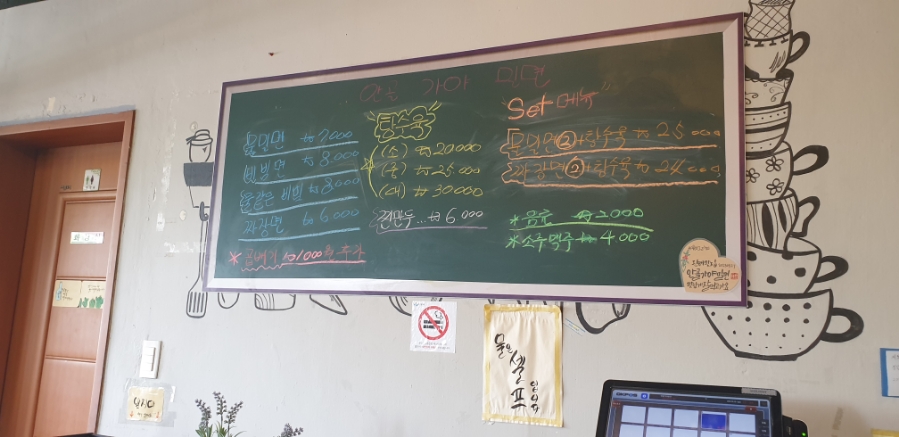 안골 가야 밀면
물밀면 ₩7000
비빔면 ₩8,000
물같은 비빔 ₩8000
짜장면 ₩6000
※ 곱빼기 ₩1000원 추가
탕수육
(소) ₩20000
(중) ₩25.000
(대) ₩30.000
찐만두... ₩6.000
Set 메뉴
물밀면②+탕수육 ₩25000원
짜장면②+탕수육 ₩24000원
※ 음료 ₩2000
※ 소주맥주 ₩4.000
안골가야밀면
물은
셀프
입니다